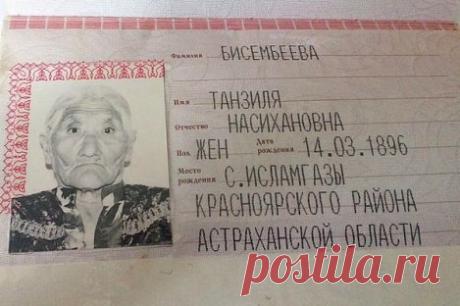 Фамилия БИСЕМБЕЕВА
Имя ТАНЗИЛЯ
Отчество НАСИХАНОВНА
Пол ЖЕН Дата рождения 14.03.1896
Место рождения С.ИСЛАМГАЗЫ
КРАСНОЯРСКОГО РАЙОНА
АСТРАХАНСКОЙ ОБЛАСТИ
postila.ru